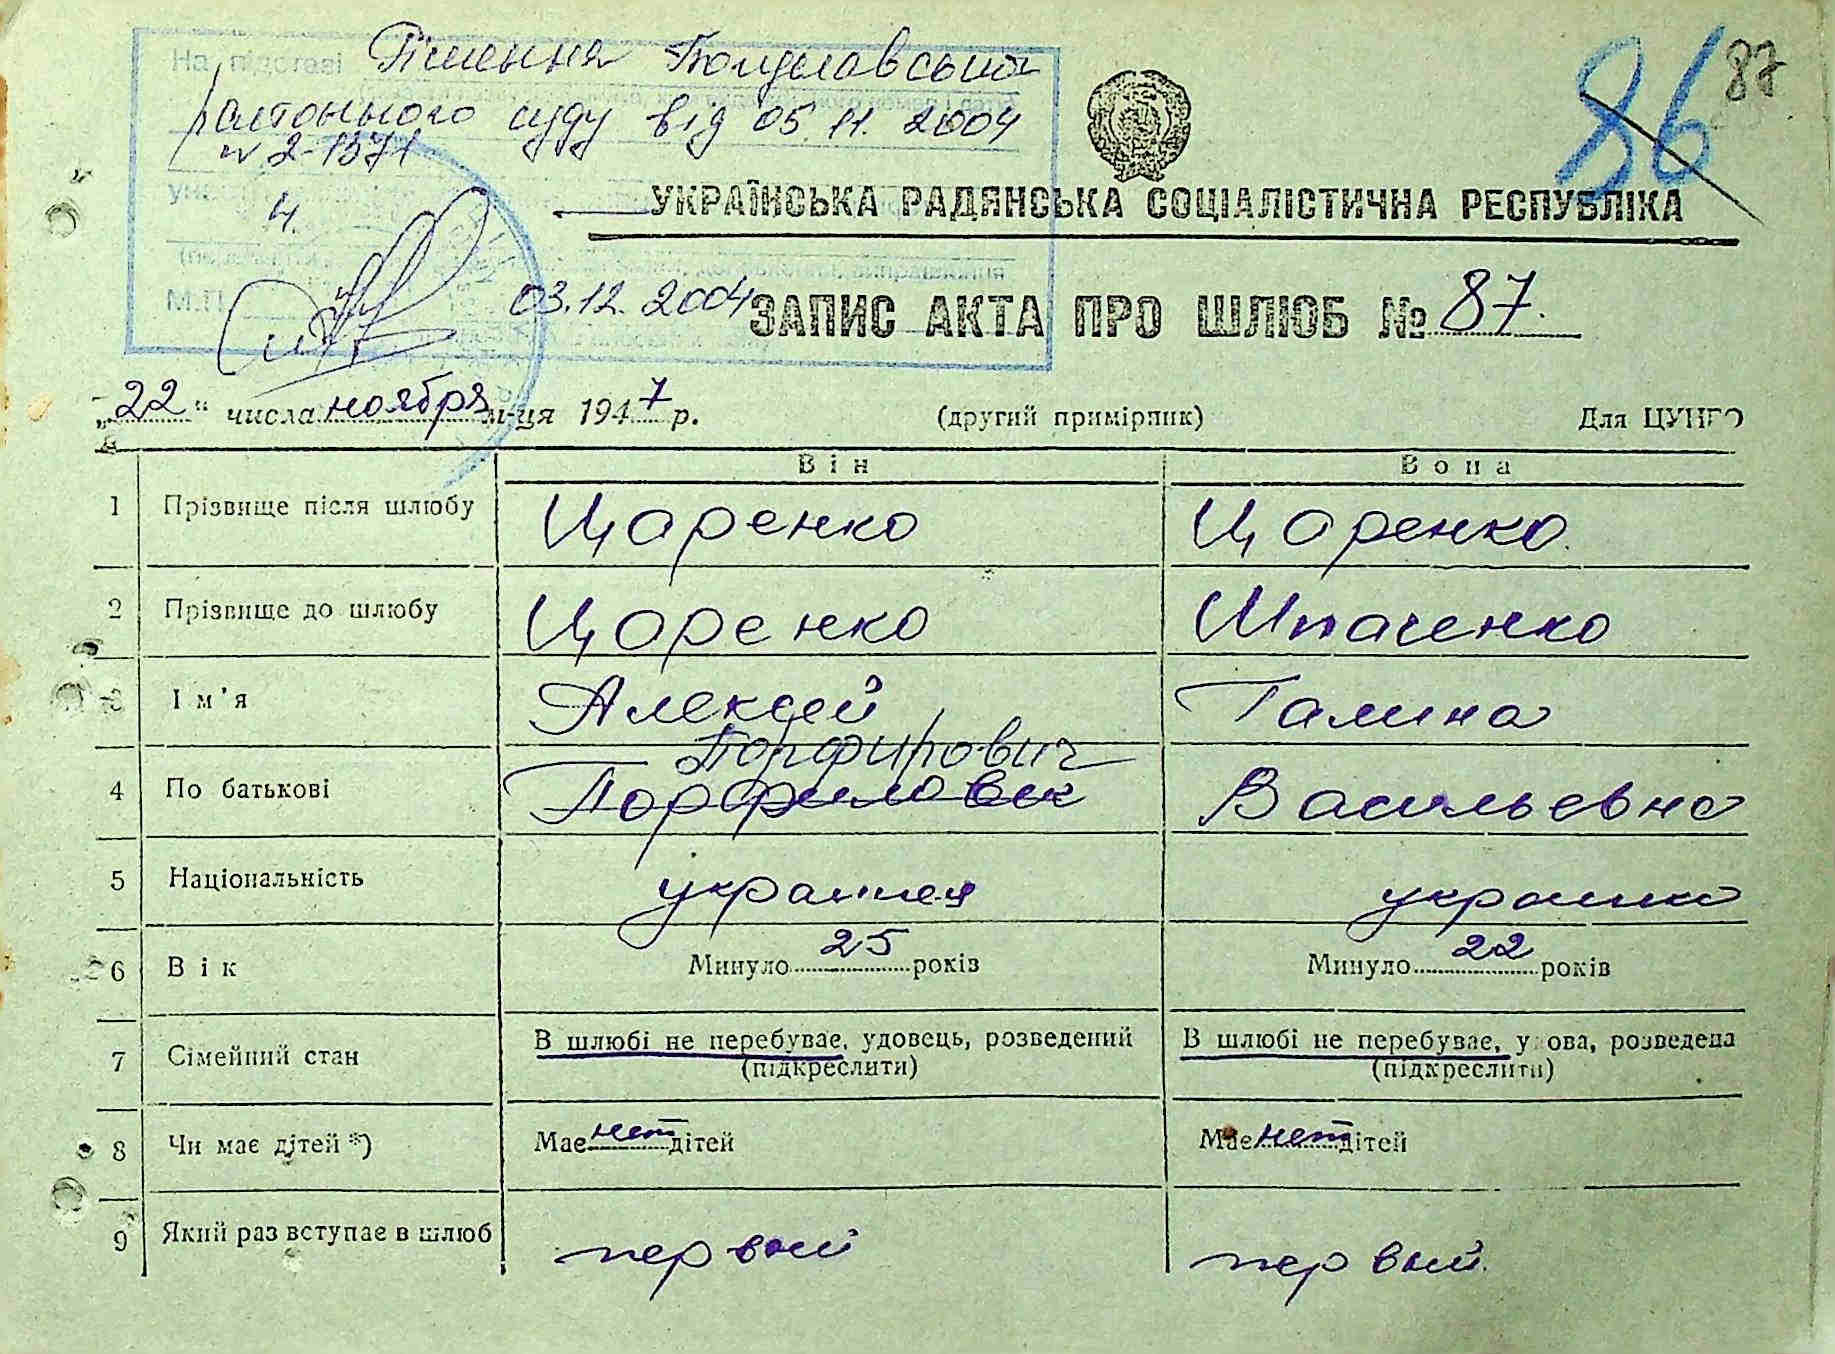 86 87
На підставі Рішення Богуславський
районного суду від 05.11.2004
№ 2-1371
Ч.
М.П.
03.12.2004
УКРАЇНСЬКА РАДЯНСЬКА СОЦІАЛІСТИЧНА РЕСПУБЛІКА
ЗАПИС АКТА ПРО ШЛЮБ № 87.
„22“ числа ноября м-ця 1947 р. (другий примірник) Для ЦУНГО
Він Вона
1 Прізвище після шлюбу Царенко Царенко.
2 Прізвище до шлюбу Царенко Шпаченко
3 Ім'я Алексей Галина
Порфирович
4 По батькові Порфилович Васильевна
5 Національність украинец украинка
6 Вік Минуло 25 років Минуло 22 років
7 Сімейний стан В шлюбі не перебуває, удовець, розведений В шлюбі не перебуває, удова, розведена
(підкреслити) (підкреслити)
8 Чи має дітей *) Має нет дітей Має нет дітей
9 Який раз вступає в шлюб первый первый.